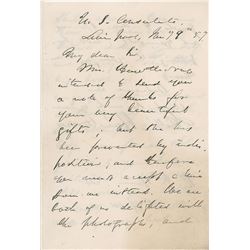 U. S. Consulate,
Liverpool, Jan 79th '57
My dear Sir
Mrs. Hawthorne
intended to send you
a note of thanks for
your very beautiful
gifts; but she has
been prevented by indis-
position, and therefore
you must accept a line
from me instead. We are
both of us delighted with
the photographs, and